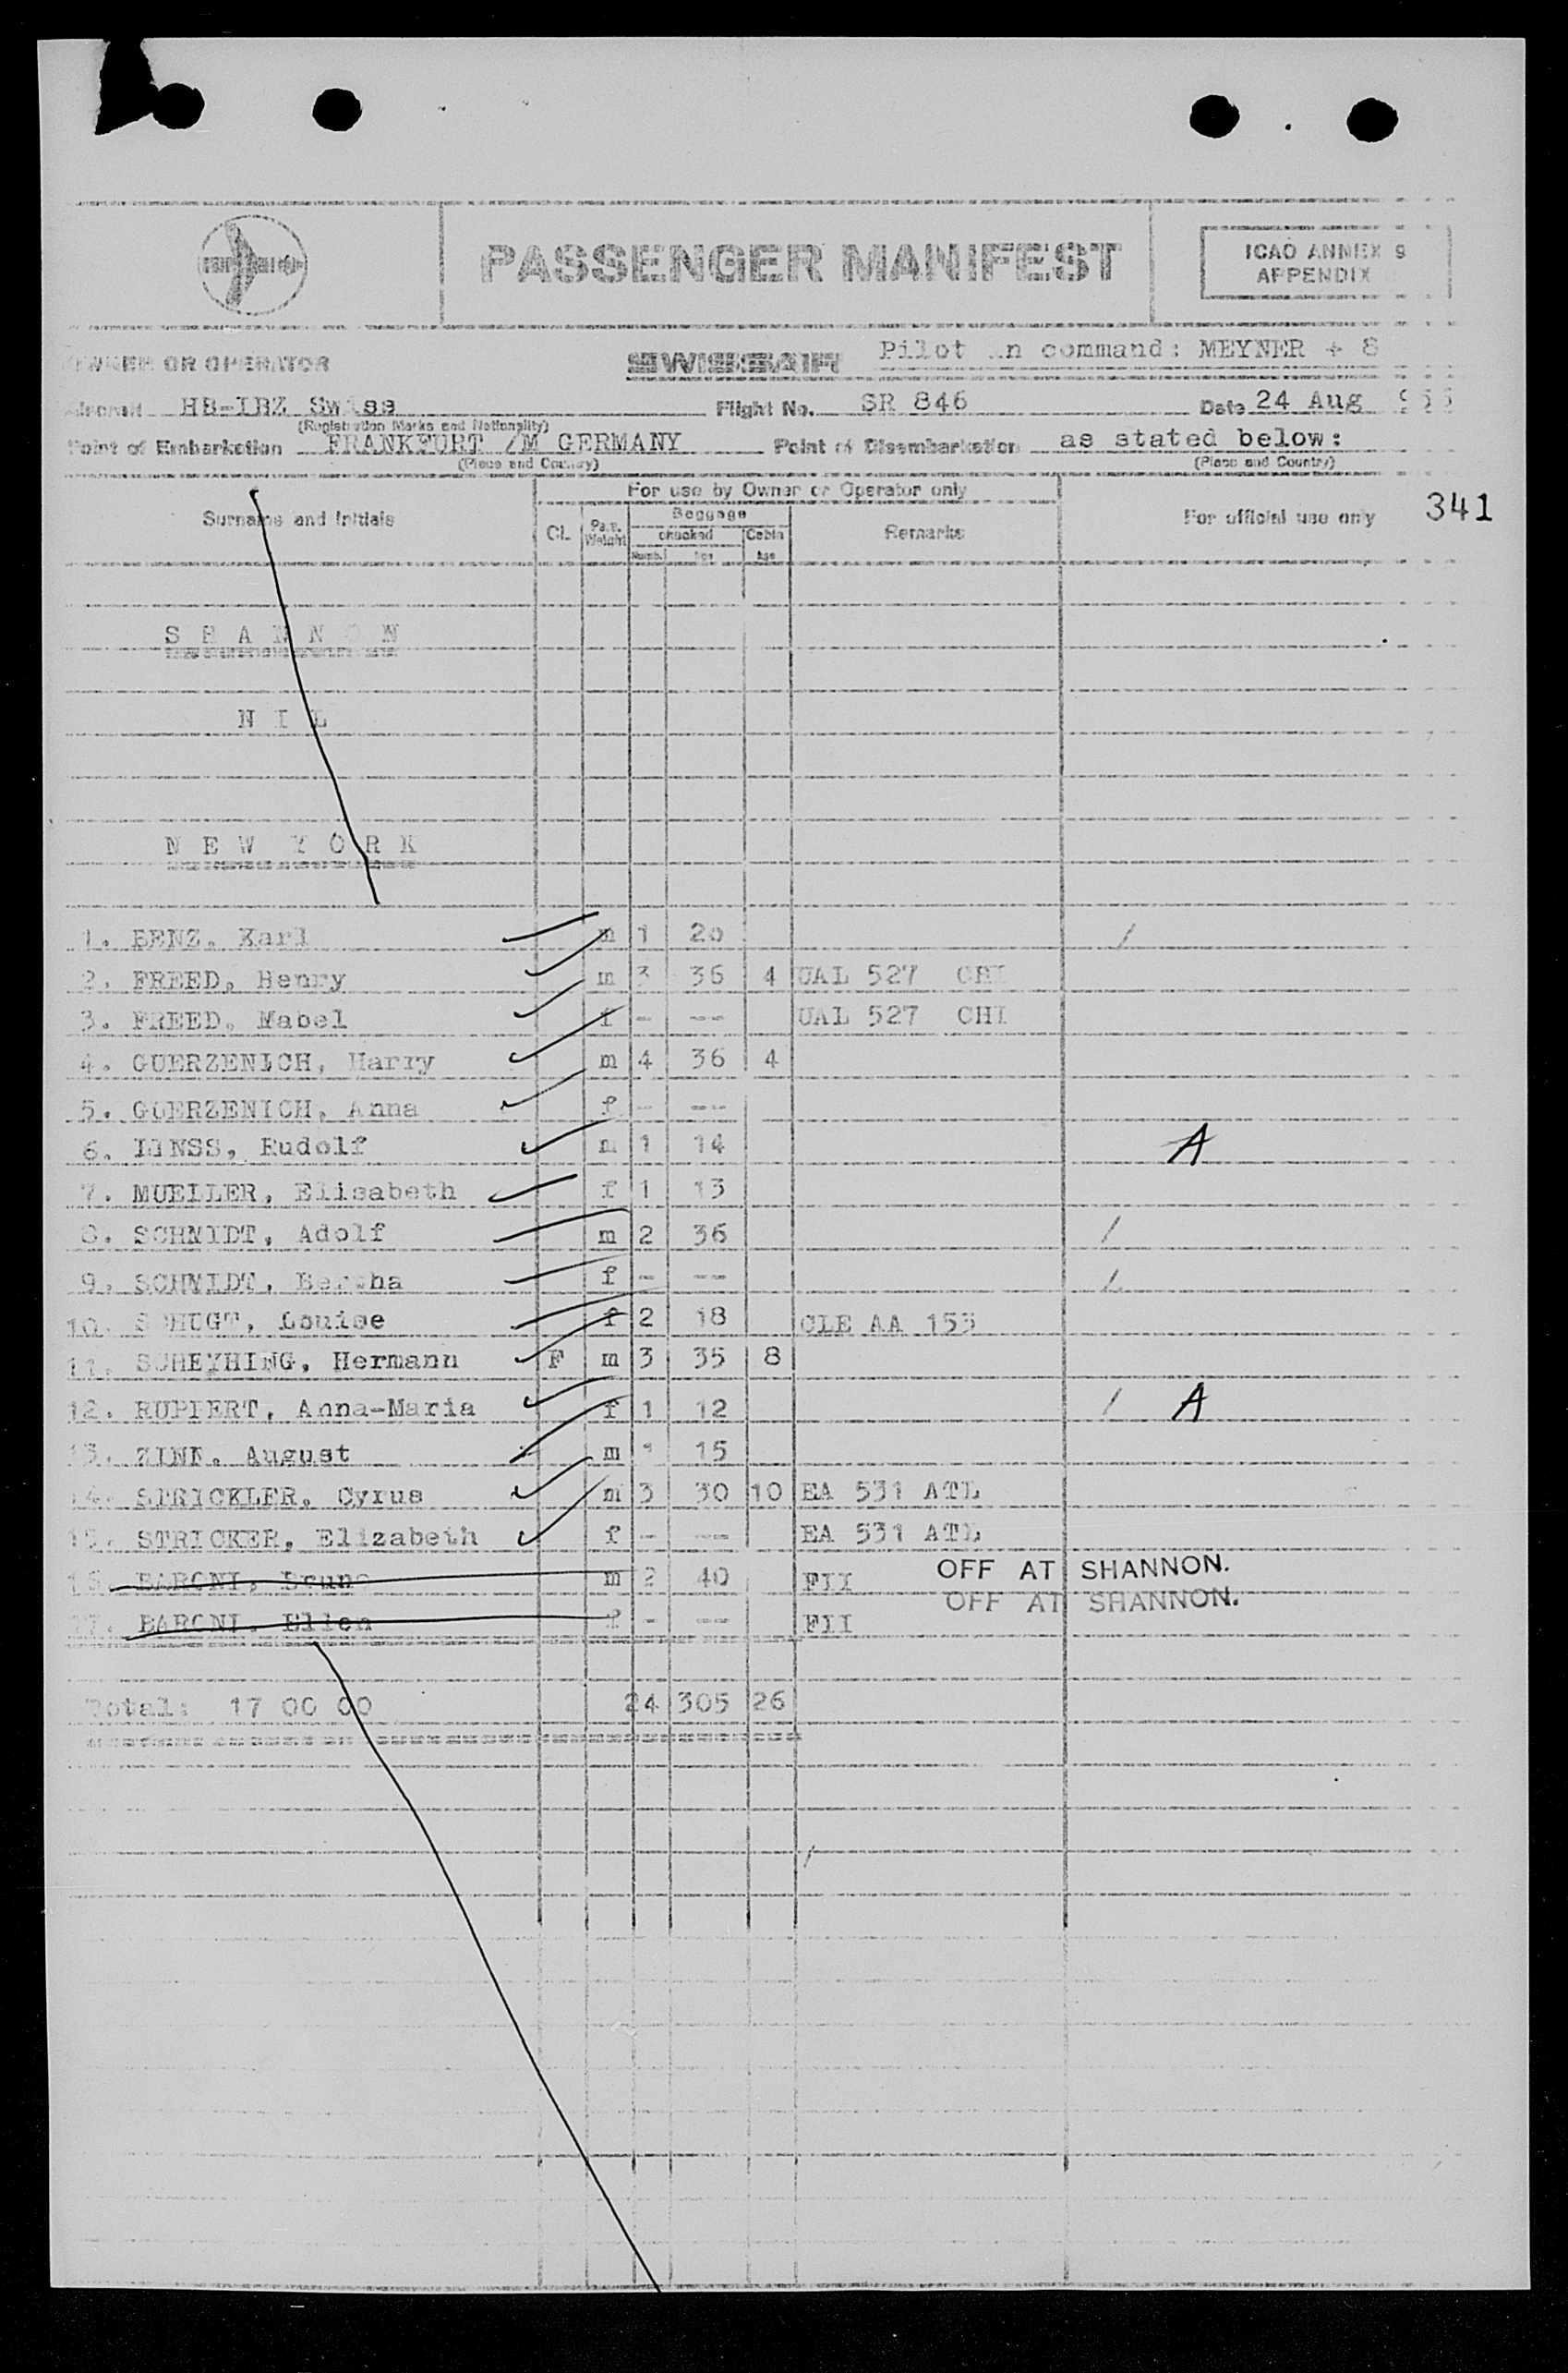 PASSENGER MANIFEST
ICAO ANNEX 9
APPENDIX
OWNER OR OPERATOR SWISSAIR Pilot in command: MEYNER + 8
Aircraft HB-IBZ Swiss Flight No. SR 846 Date 24 Aug
(Registration Marks and Nationality)
Point of Embarkation FRANKFURT /M GERMANY Point of Disembarkation as stated below:
(Place and Country) (Place and Country)
For use by Owner or Operator only
Surname and Initials Cl. Pax. Weight Baggage checked Cabin Remarks For official use only 341
Numb. kgs kgs
SHANNON
NIL
NEW YORK
1. BENZ, Karl m 1 20 /
2. FREED, Henry m 3 36 4 UAL 527 CHI
3. FREED, Mabel f - -- UAL 527 CHI
4. GUERZENICH, Harry m 4 36 4
5. GUERZENICH, Anna f - --
6. Rudolf m 1 14 A
7. MUELLER, Elisabeth f 1 13
8. SCHMIDT, Adolf m 2 36 /
9. SCHMIDT, Bertha f - --
10. Louise f 2 18 CLE AA 155
11. SCHEYHING, Hermann F m 3 35 8
12. RUPPERT, Anna-Maria f 1 12 / A
13. ZINN, August m 1 15
14. STRICKLER, Cyrus m 3 30 10 EA 531 ATL
15. STRICKER, Elizabeth f - -- EA 531 ATL
16. BARONI, Bruno m 2 40 FII OFF AT SHANNON.
17. BARONI, Ellen f - -- FII OFF AT SHANNON.
Total: 17 00 00 24 305 26